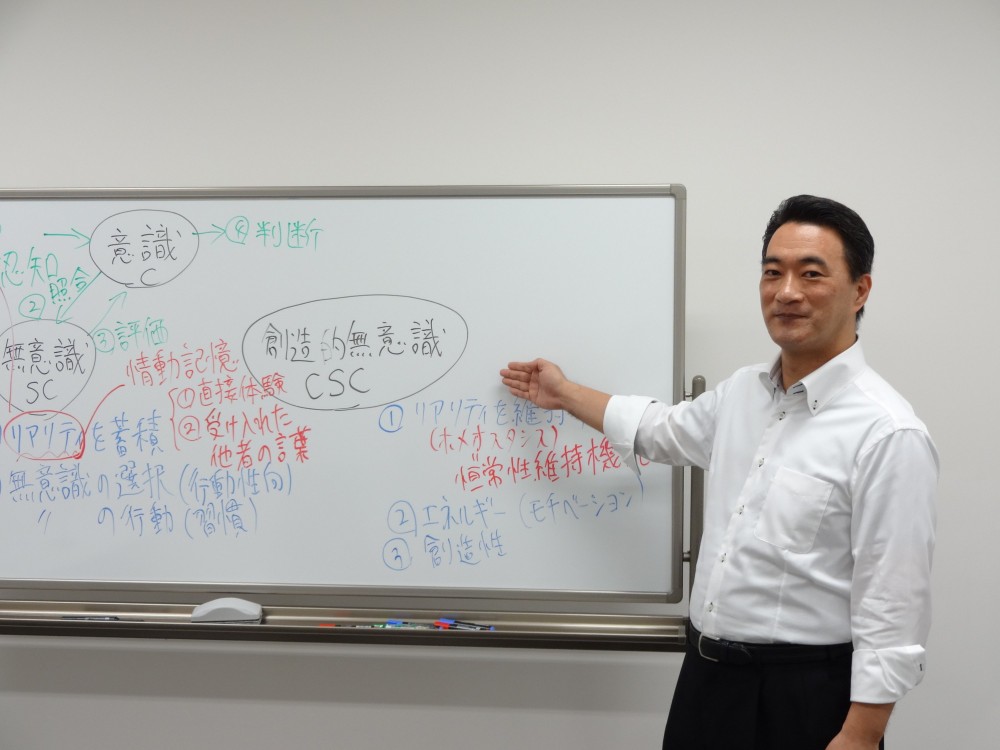 意識
C
④判断
認知
②照合
③評価
無意識
SC
情動記憶
①直接体験
②受け入れた
他者の言葉
リアリティを蓄積
無意識の選択(行動性向)
〃 の行動(習慣)
創造的無意識
CSC
①リアリティを維持
(ホメオスタシス)
恒常性維持機
②エネルギー(モチベーション)
③創造性